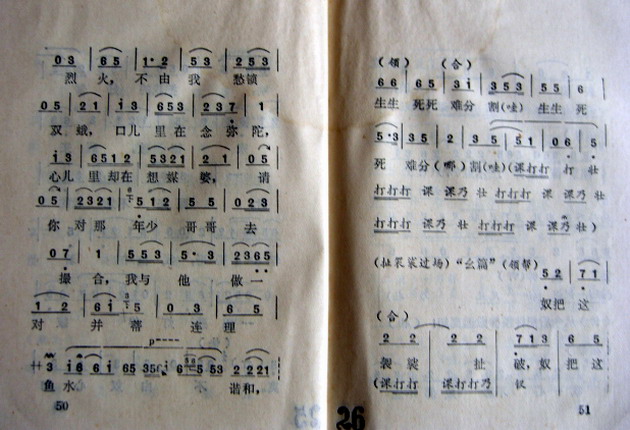 0 3 | 6 5 | 1·2 | 5 3 | 2 5 3
烈 火， 不 由 我 愁锁
0 5 | 2 1 | i 3 | 6 5 3 | 2 3 7 | 1
双 蛾， 口儿 里 在 念 弥 陀，
i 3 | 6 5 1 2 | 5 3 2 1 | 2 1 | 0 5
心儿 里 却在 想 媒 婆， 请
0 5 | 2 3 2 1 | 5 1 2 | 5 5 | 0 2 3
你 对 那 年少 哥 哥 去
0 7 | 1 | 5 5 3 | 5 1 2 | 2 3 6 5
撮 合，我 与 他 做 一
1 2 | 6 i 5 | 0 3 | 6 5
对 并 蒂 连 理
鱼 水 谐 和，
50
（领） （合）
6 6 | 6 5 | 3 i | 3 5 3 | 5 5 | 6
生生 死死 难分 割（哇） 生生 死
5·3 | 3 5 | 2 | 3 5 | 5 1 | 0 6 | 1
死 难分（哪）割（哇）（课打打 打 壮
打打打 课 课乃 壮 打打打 课 课乃 壮
打打打 课乃 壮 打打打 课 课乃 壮）
（扯袈裟过场）“幺篇”（领帮）
5 2 | 7 1
奴把 这
（合）
2 2 | 2 2 | 7 1 3 | 6 5
袈 裟 扯 破，奴 把 这
（课打打 课打打乃 仪
51
26